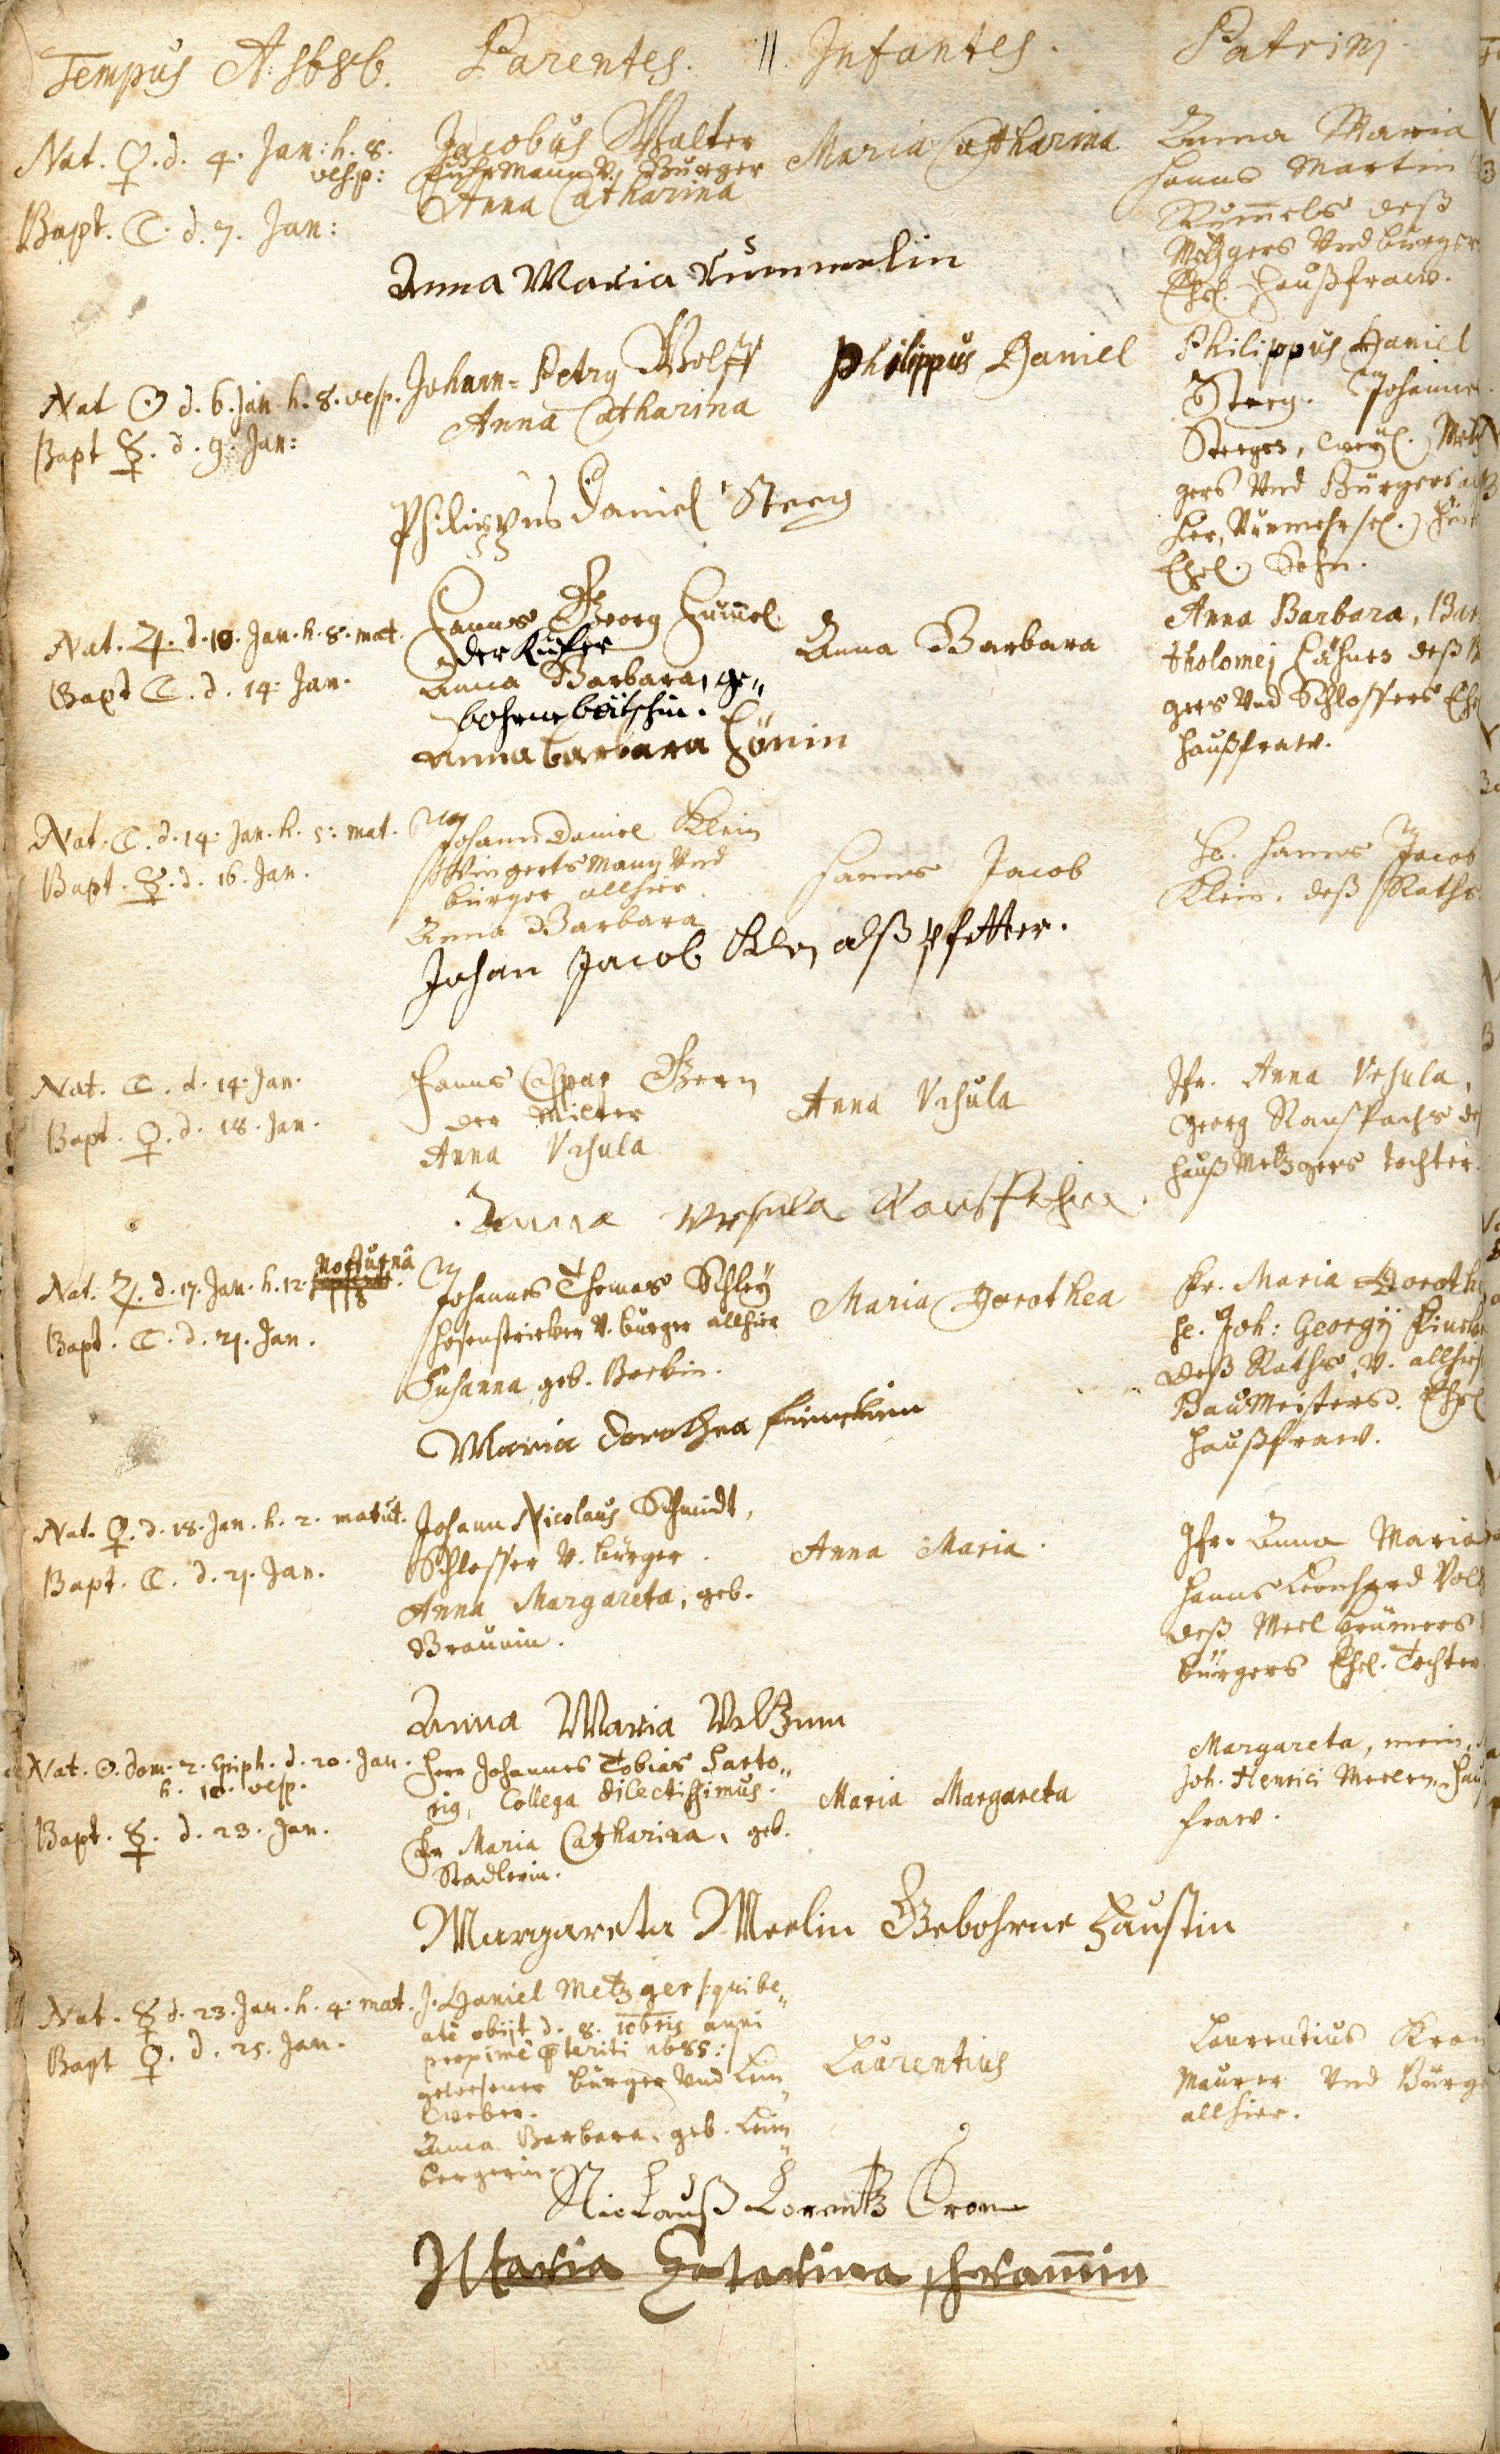 Tempus A. 1686. Parentes. Infantes. Patrini
Nat. ♀. d. 4. Jan: h. 8. vesp:
Bapt. ☾. d. 7. Jan:
Jacobus Walter
Fuhrmann V. Burger
Anna Catharina
Maria Catharina
Anna Maria
Hanns Martin
Rümmels deß
Metzgers Vnd burgers
Ehel. Haußfraw.
Anna Maria Rümmelin
Nat ☉ d. 6. Jan h. 8. vesp.
Bapt ☿. d. 9. Jan:
Johann-Petry Wolff
Anna Catharina
Philippus Daniel
Philippus Daniel
Steeg. Johannes
Steeges, weyl. Metz
gers Vnd Burgers al
hier, Nunmehr sel.
Ehel. Sohn.
Philippus Daniel Steeg
Nat. ♃. d. 10. Jan. h. 8. mat.
Bapt ☾. d. 14. Jan.
Hanns Georg Hummel
der Kiefer
Anna Barbara, ge„
bohrne
Anna Barbara
Anna Barbara, Bar
tholomej deß
gers Vnd Schlossers Ehe
haußfraw.
Anna barbara
Nat. ☾. d. 14. Jan. h. 5. mat.
Bapt. ☿. d. 16. Jan.
Johann Daniel Klein
Wingertsmann Vnd
burger allhier.
Anna Barbara
Hanns Jacob
H. Hanns Jacob
Klein. deß Raths
Johan Jacob Klein alß pfetter.
Nat. ☾. d. 14. Jan.
Bapt. ♀. d. 18. Jan.
Hanns Caspar Gern
der Miller
Anna Vrsula
Anna Vrsula
Jfr. Anna Vrsula,
Georg Ranspachs de
haußMetzgers tochter.
Anna Vrsula
Nat. ♃. d. 17. Jan. h. 12. nocturnâ
Bapt. ☾. d. 21. Jan.
Johannes Thomas Schley
hosenstricker V. burger allhier
Susanna geb. Beckin.
Maria Dorothea
Fr. Maria Doroth
H. Joh: Georgij
deß Raths, V. allhie
BauMeisters. Ehel
Haußfraw.
Maria Dorothea
Nat. ♀. d. 18. Jan. h. 2. matut.
Bapt. ☾. d. 21. Jan.
Johann Nicolaus Schmidt,
Schlosser V. burger.
Anna Margareta, geb.
Braunin.
Anna Maria.
Jfr. Anna Maria
Hanns Leonhard Vol
deß Meel
burgers Ehel. Tochter
Anna Maria
Nat. ☉. dom. 2. Epiph. d. 20. Jan.
h. 10. vesp.
Bapt. ☿. d. 23. Jan.
Herr Johannes Tobias Sarto„
riq, Collega dilectissimus.
Fr Maria Catharina, geb.
Stadlerin.
Maria Margareta
Margareta, mein,
Joh. Henrici Haus
fraw.
Margareta Merlin Gebohrne Faustin
Nat. ☿ d. 23. Jan. h. 4. mat.
Bapt ♀. d. 25. Jan.
J. Daniel Metzger /: qui be„
atè obijt d. 8. 10bris anni
proximè pteriti 1685:/
gewesener burger Vnd Lein„
weber.
Anna Barbara, geb. Lein
bergerin.
Laurentius
Laurentius Kron
Maurer Vnd Burge
allhier.
Niclauß Lorentz Cron
Maria Catarina schramin